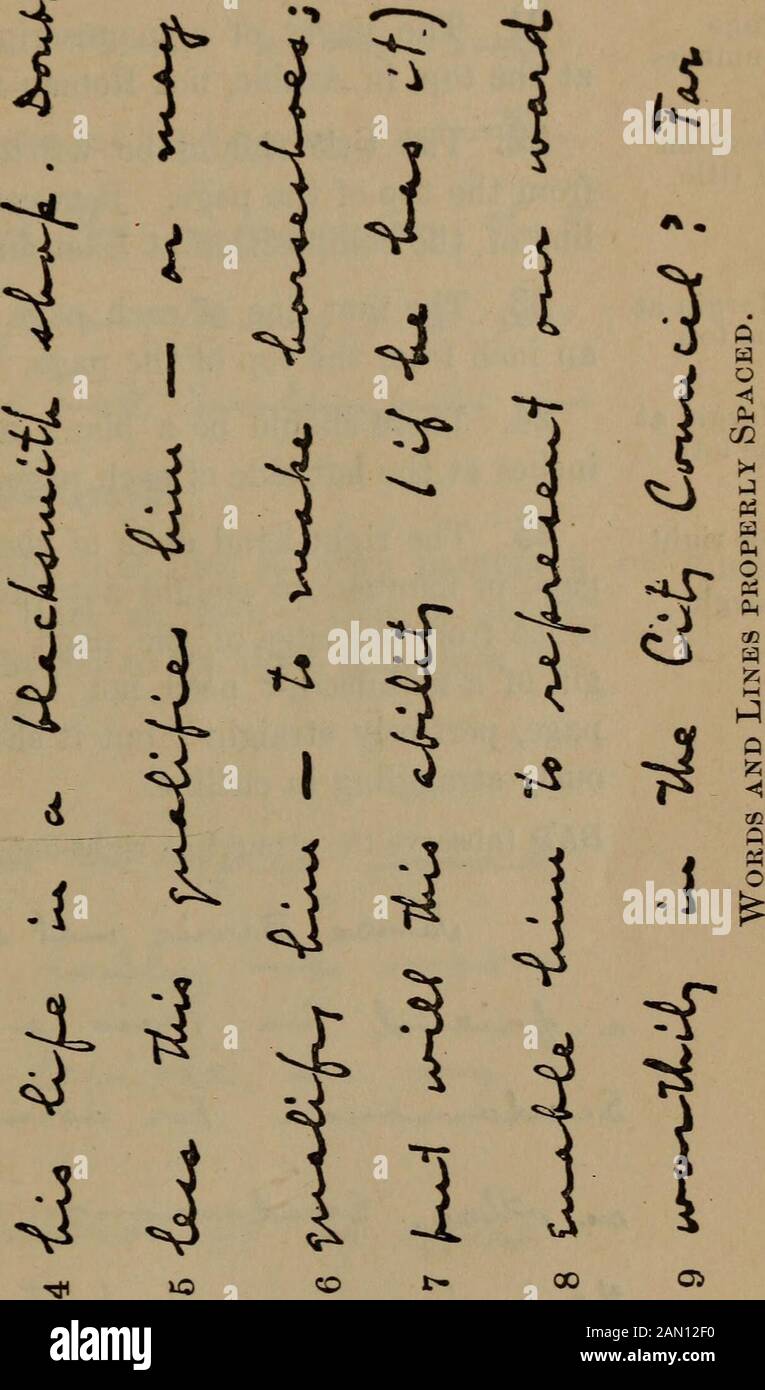 4 his life in a blacksmith shop. Doubt
5 less this qualifies him — or may
6 qualify him — to make horseshoes;
7 but will this ability (if he has it)
8 enable him to represent our ward
9 worthily in the City Council? Far
WORDS AND LINES PROPERLY SPACED.
alamy
Image ID: 2AN12F0
www.alamy.com